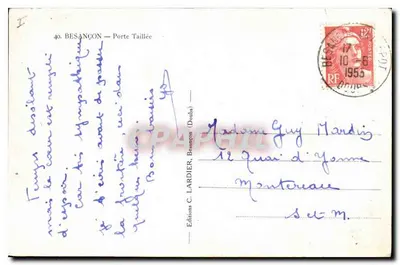 40. BESANÇON — Porte Taillée
Temps désolant
mais le cœur est rempli
d'espoir.
Car très sympathique
je t'écris avant de passer
la frontière, ceci dans
quelques heures.
Bons baisers
Editions C. LARDIER, Besançon (Doubs)
17
10-6
1955
DOUBS
RF
Madame Guy Mardin
12 Quai d'Yonne
Montereau
S-et-M.